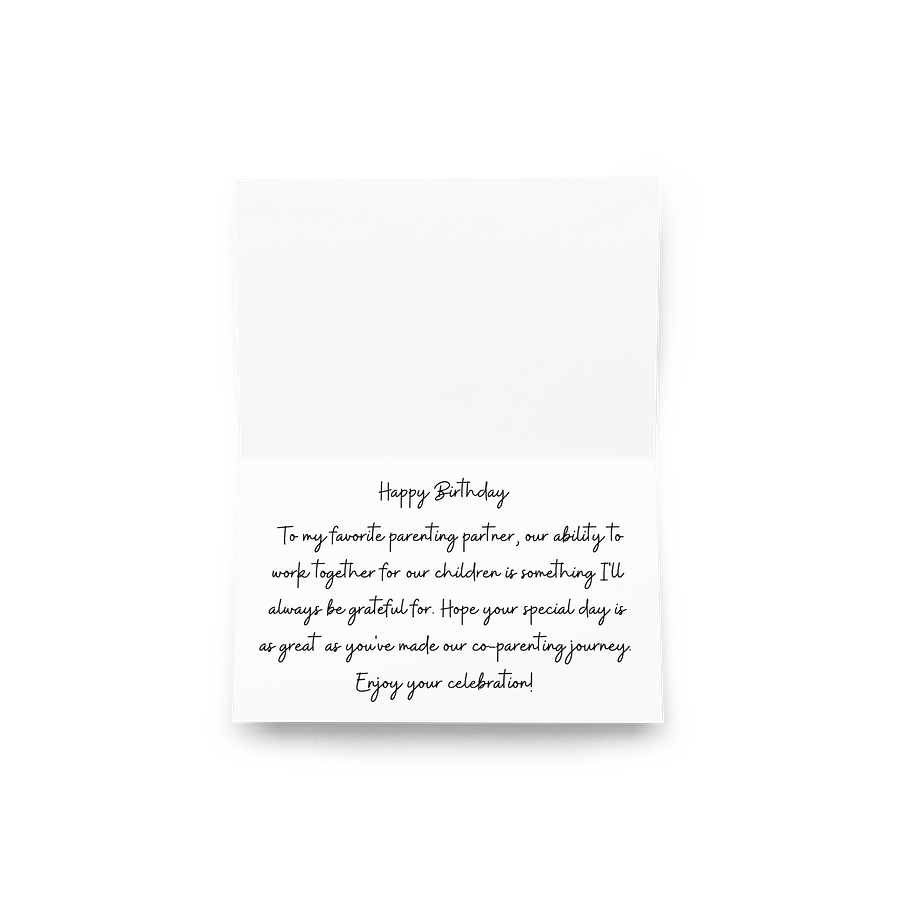 Happy Birthday
To my favorite parenting partner, our ability to
work together for our children is something I'll
always be grateful for. Hope your special day is
as great as you've made our co-parenting journey.
Enjoy your celebration!